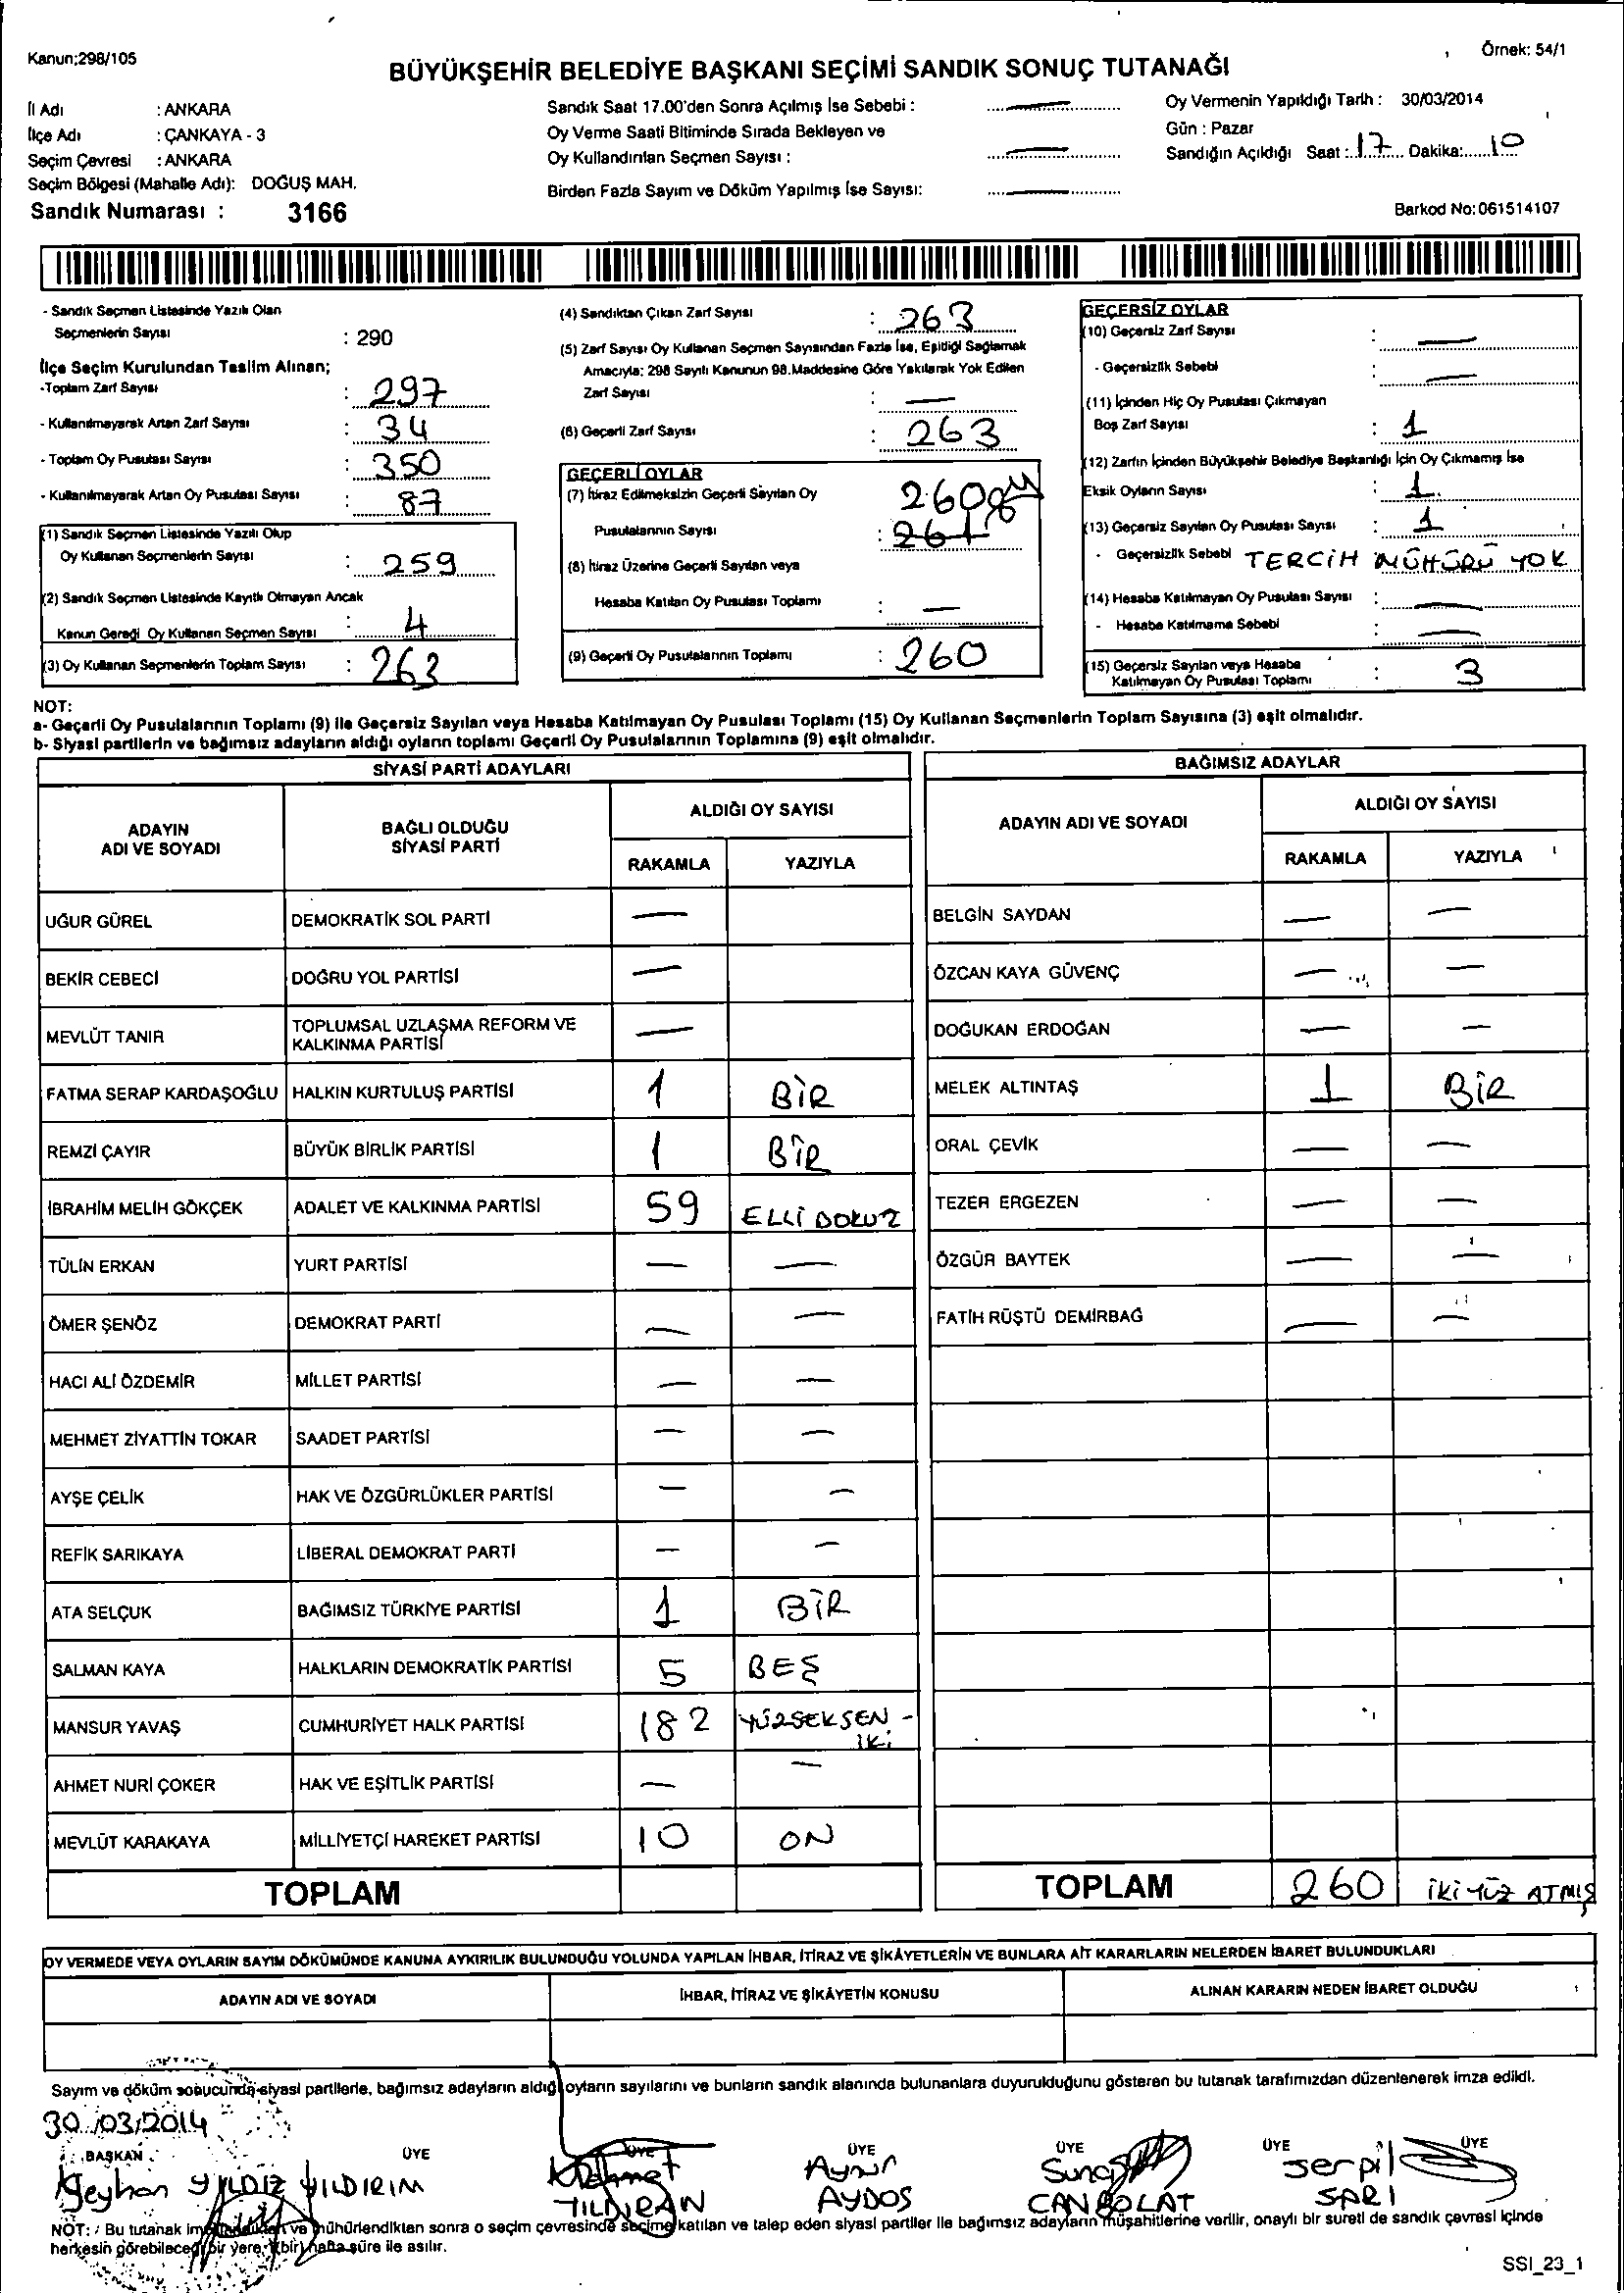 Kanun;298/105
Örnek: 54/1
BÜYÜKŞEHİR BELEDİYE BAŞKANI SEÇİMİ SANDIK SONUÇ TUTANAĞI
İl Adı : ANKARA
İlçe Adı : ÇANKAYA - 3
Seçim Çevresi : ANKARA
Seçim Bölgesi (Mahalle Adı): DOĞUŞ MAH.
Sandık Numarası : 3166
Sandık Saat 17.00'den Sonra Açılmış İse Sebebi : —
Oy Verme Saati Bitiminde Sırada Bekleyen ve
Oy Kullandırılan Seçmen Sayısı : —
Birden Fazla Sayım ve Döküm Yapılmış İse Sayısı: —
Oy Vermenin Yapıldığı Tarih : 30/03/2014
Gün : Pazar
Sandığın Açıldığı Saat : 17 Dakika: 10
Barkod No:061514107
- Sandık Seçmen Listesinde Yazılı Olan
Seçmenlerin Sayısı : 290
İlçe Seçim Kurulundan Teslim Alınan;
-Toplam Zarf Sayısı : 297
- Kullanılmayarak Artan Zarf Sayısı : 34
- Toplam Oy Pusulası Sayısı : 350
- Kullanılmayarak Artan Oy Pusulası Sayısı : 87
(1) Sandık Seçmen Listesinde Yazılı Olup
Oy Kullanan Seçmenlerin Sayısı : 259
(2) Sandık Seçmen Listesinde Kayıtlı Olmayan Ancak
Kanun Gereği Oy Kullanan Seçmen Sayısı : 4
(3) Oy Kullanan Seçmenlerin Toplam Sayısı : 263
(4) Sandıktan Çıkan Zarf Sayısı : 263
(5) Zarf Sayısı Oy Kullanan Seçmen Sayısından Fazla İse, Eşitliği Sağlamak
Amacıyla; 298 Sayılı Kanunun 98.Maddesine Göre Yakılarak Yok Edilen
Zarf Sayısı : —
(6) Geçerli Zarf Sayısı : 263
GEÇERLİ OYLAR
(7) İtiraz Edilmeksizin Geçerli Sayılan Oy 260
Pusulalarının Sayısı : 261
(8) İtiraz Üzerine Geçerli Sayılan veya
Hesaba Katılan Oy Pusulası Toplamı : —
(9) Geçerli Oy Pusulalarının Toplamı : 260
GEÇERSİZ OYLAR
(10) Geçersiz Zarf Sayısı : —
- Geçersizlik Sebebi : —
(11) İçinden Hiç Oy Pusulası Çıkmayan
Boş Zarf Sayısı : 1
(12) Zarfın İçinden Büyükşehir Belediye Başkanlığı İçin Oy Çıkmamış İse
Eksik Oyların Sayısı : 1
(13) Geçersiz Sayılan Oy Pusulası Sayısı : 1
- Geçersizlik Sebebi TERCİH MÜHÜRÜ YOK
(14) Hesaba Katılmayan Oy Pusulası Sayısı : —
- Hesaba Katılmama Sebebi : —
(15) Geçersiz Sayılan veya Hesaba : 3
Katılmayan Oy Pusulası Toplamı
NOT:
a- Geçerli Oy Pusulalarının Toplamı (9) ile Geçersiz Sayılan veya Hesaba Katılmayan Oy Pusulası Toplamı (15) Oy Kullanan Seçmenlerin Toplam Sayısına (3) eşit olmalıdır.
b- Siyasi partilerin ve bağımsız adayların aldığı oyların toplamı Geçerli Oy Pusulalarının Toplamına (9) eşit olmalıdır.
SİYASİ PARTİ ADAYLARI
ADAYIN ADI VE SOYADI
BAĞLI OLDUĞU SİYASİ PARTİ
ALDIĞI OY SAYISI
RAKAMLA YAZIYLA
UĞUR GÜREL DEMOKRATİK SOL PARTİ —
BEKİR CEBECİ DOĞRU YOL PARTİSİ —
MEVLÜT TANIR TOPLUMSAL UZLAŞMA REFORM VE KALKINMA PARTİSİ —
FATMA SERAP KARDAŞOĞLU HALKIN KURTULUŞ PARTİSİ 1 BİR
REMZİ ÇAYIR BÜYÜK BİRLİK PARTİSİ 1 BİR
İBRAHİM MELİH GÖKÇEK ADALET VE KALKINMA PARTİSİ 59 ELLİ DOKUZ
TÜLİN ERKAN YURT PARTİSİ — —
ÖMER ŞENÖZ DEMOKRAT PARTİ — —
HACI ALİ ÖZDEMİR MİLLET PARTİSİ — —
MEHMET ZİYATTİN TOKAR SAADET PARTİSİ — —
AYŞE ÇELİK HAK VE ÖZGÜRLÜKLER PARTİSİ — —
REFİK SARIKAYA LİBERAL DEMOKRAT PARTİ — —
ATA SELÇUK BAĞIMSIZ TÜRKİYE PARTİSİ 1 BİR
SALMAN KAYA HALKLARIN DEMOKRATİK PARTİSİ 5 BEŞ
MANSUR YAVAŞ CUMHURİYET HALK PARTİSİ 182 YÜZSEKSEN - İKİ
AHMET NURİ ÇOKER HAK VE EŞİTLİK PARTİSİ — —
MEVLÜT KARAKAYA MİLLİYETÇİ HAREKET PARTİSİ 10 ON
TOPLAM
BAĞIMSIZ ADAYLAR
ADAYIN ADI VE SOYADI
ALDIĞI OY SAYISI
RAKAMLA YAZIYLA
BELGİN SAYDAN — —
ÖZCAN KAYA GÜVENÇ — —
DOĞUKAN ERDOĞAN — —
MELEK ALTINTAŞ 1 BİR
ORAL ÇEVİK — —
TEZER ERGEZEN — —
ÖZGÜR BAYTEK — —
FATİH RÜŞTÜ DEMİRBAĞ — —
TOPLAM 260 İKİ YÜZ ATMIŞ
OY VERMEDE VEYA OYLARIN SAYIM DÖKÜMÜNDE KANUNA AYKIRILIK BULUNDUĞU YOLUNDA YAPILAN İHBAR, İTİRAZ VE ŞİKÂYETLERİN VE BUNLARA AİT KARARLARIN NELERDEN İBARET BULUNDUKLARI
ADAYIN ADI VE SOYADI İHBAR, İTİRAZ VE ŞİKÂYETİN KONUSU ALINAN KARARIN NEDEN İBARET OLDUĞU
Sayım ve döküm sonucunda siyasi partilerle, bağımsız adayların aldığı oyların sayılarını ve bunların sandık alanında bulunanlara duyurulduğunu gösteren bu tutanak tarafımızdan düzenlenerek imza edildi.
30/03/2014
BAŞKAN ÜYE ÜYE ÜYE ÜYE ÜYE ÜYE
YILDIZ YILDIRIM Mehmet Aynur Serpil
YILDIRAN AYDOS CANBOLAT SARI
NOT: / Bu tutanak ve mühürlendikten sonra o seçim çevresinde seçime katılan ve talep eden siyasi partiler ile bağımsız adayların müşahitlerine verilir, onaylı bir sureti de sandık çevresi içinde
herkesin görebileceği bir yere, (bir) hafta süre ile asılır.
SSI_23_1